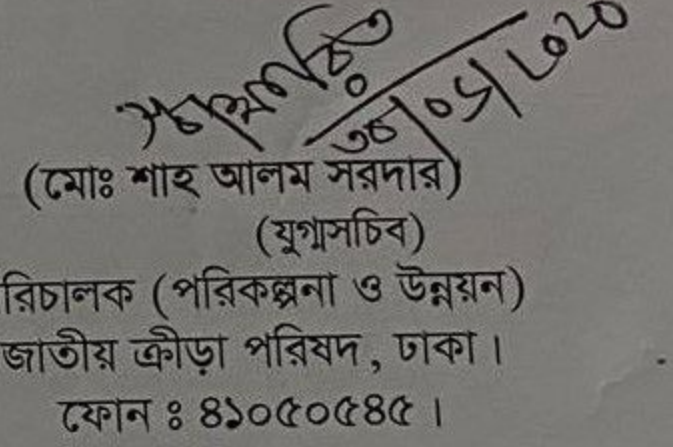 (মোঃ শাহ আলম সরদার)
(যুগ্মসচিব)
রিচালক (পরিকল্পনা ও উন্নয়ন)
জাতীয় ক্রীড়া পরিষদ, ঢাকা।
ফোন ঃ ৪১০৫০৫৪৫।